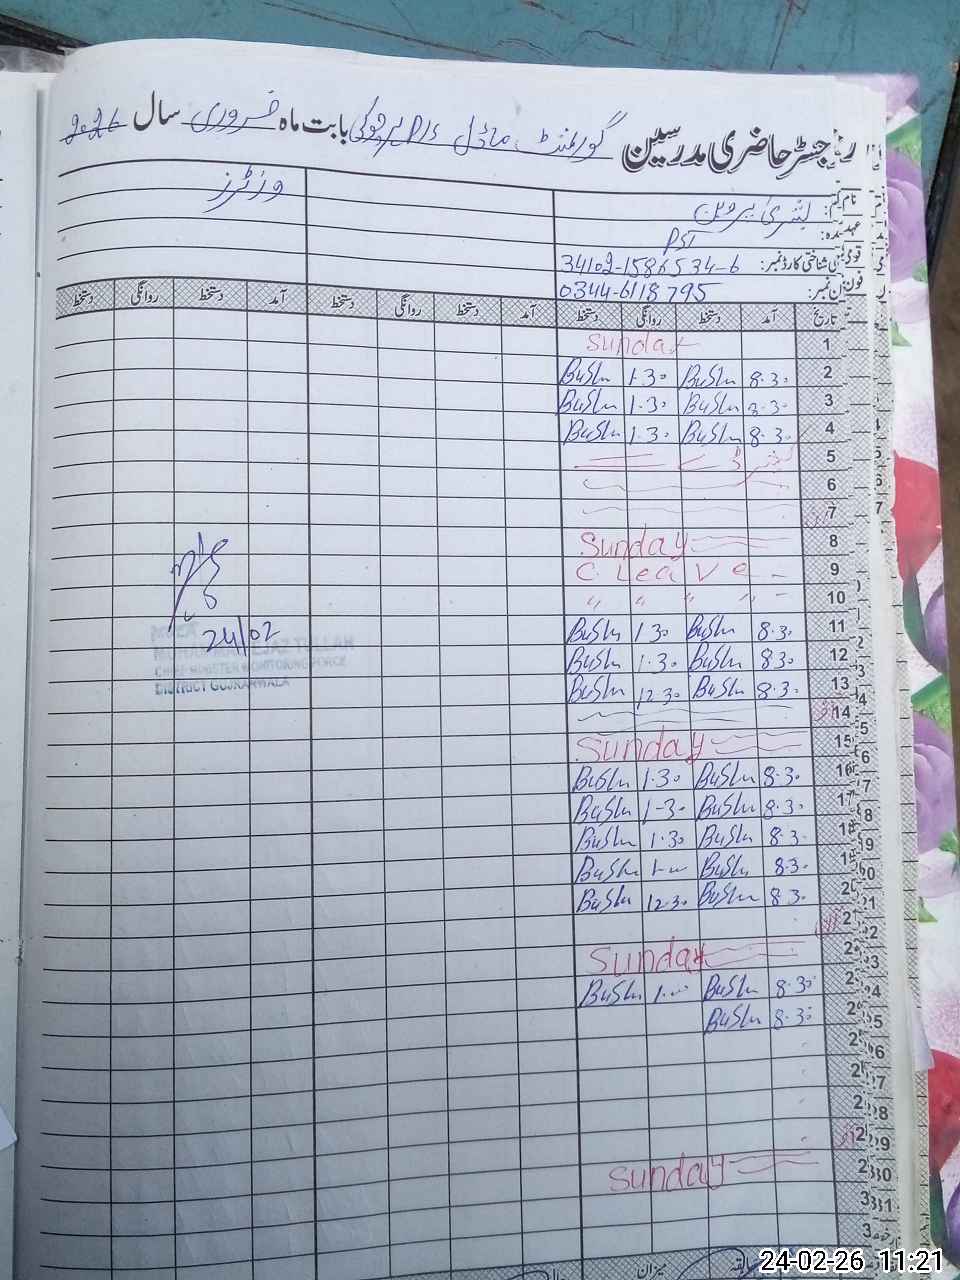 رجسٹر حاضری مدرسین گورنمنٹ ماڈل P/S بابت ماہ فروری سال 2026
نام معلم: بشریٰ پروین
وزٹرز
عہدہ: PST
قومی شناختی کارڈ نمبر: 34102-1586534-6
فون نمبر: 0344-6118795
تاریخ آمد دستخط روانگی دستخط آمد دستخط روانگی دستخط آمد دستخط روانگی دستخط
1 Sunday
2 8.30 Bushu 1.30 Bushu
3 8.30 Bushu 1.30 Bushu
4 8.30 Bushu 1.30 Bushu
5
6
7
8 Sunday
9 C. Leave
10 " " " "
11 8.30 Bushu 1.30 Bushu
12 8.30 Bushu 1.30 Bushu
13 8.30 Bushu 12.30 Bushu
14
15 Sunday
16 8.30 Bushu 1.30 Bushu
17 8.30 Bushu 1-30 Bushu
18 8.30 Bushu 1.30 Bushu
19 8.30 Bushu 1.00 Bushu
20 8.30 Bushu 12.30 Bushu
21
Sunday
8.30 Bushu 1.00 Bushu
8.30 Bushu
Sunday
24/02
CHIEF MINISTER MONITORING FORCE
DISTRICT GUJRANWALA
میزان
24-02-26 11:21